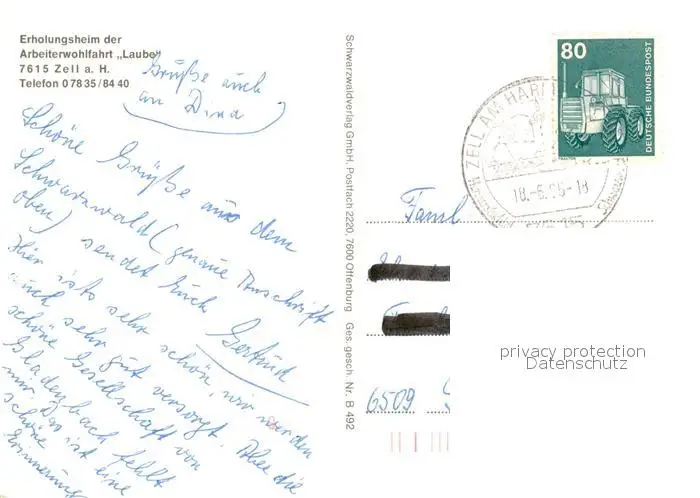 Erholungsheim der
Arbeiterwohlfahrt „Laube"
7615 Zell a. H.
Telefon 0 78 35 / 84 40
Grüße auch
an Dina
Schöne Grüße aus dem
Schwarzwald (genaue Anschrift
oben) sendet Euch Gertrud
Hier ists sehr schön, wir werden
auch sehr gut versorgt. Aber die
schöne Gesellschaft von
Gladenbach fehlt
mir. Das ist eine
schöne
Erinnerung
Schwarzwaldverlag GmbH, Postfach 2220, 7600 Offenburg Ges. gesch. Nr. B 492
80
DEUTSCHE BUNDESPOST
TRAKTOR
ZELL AM HAR
18.-6.86-18
Faml
6509
privacy protection
Datenschutz